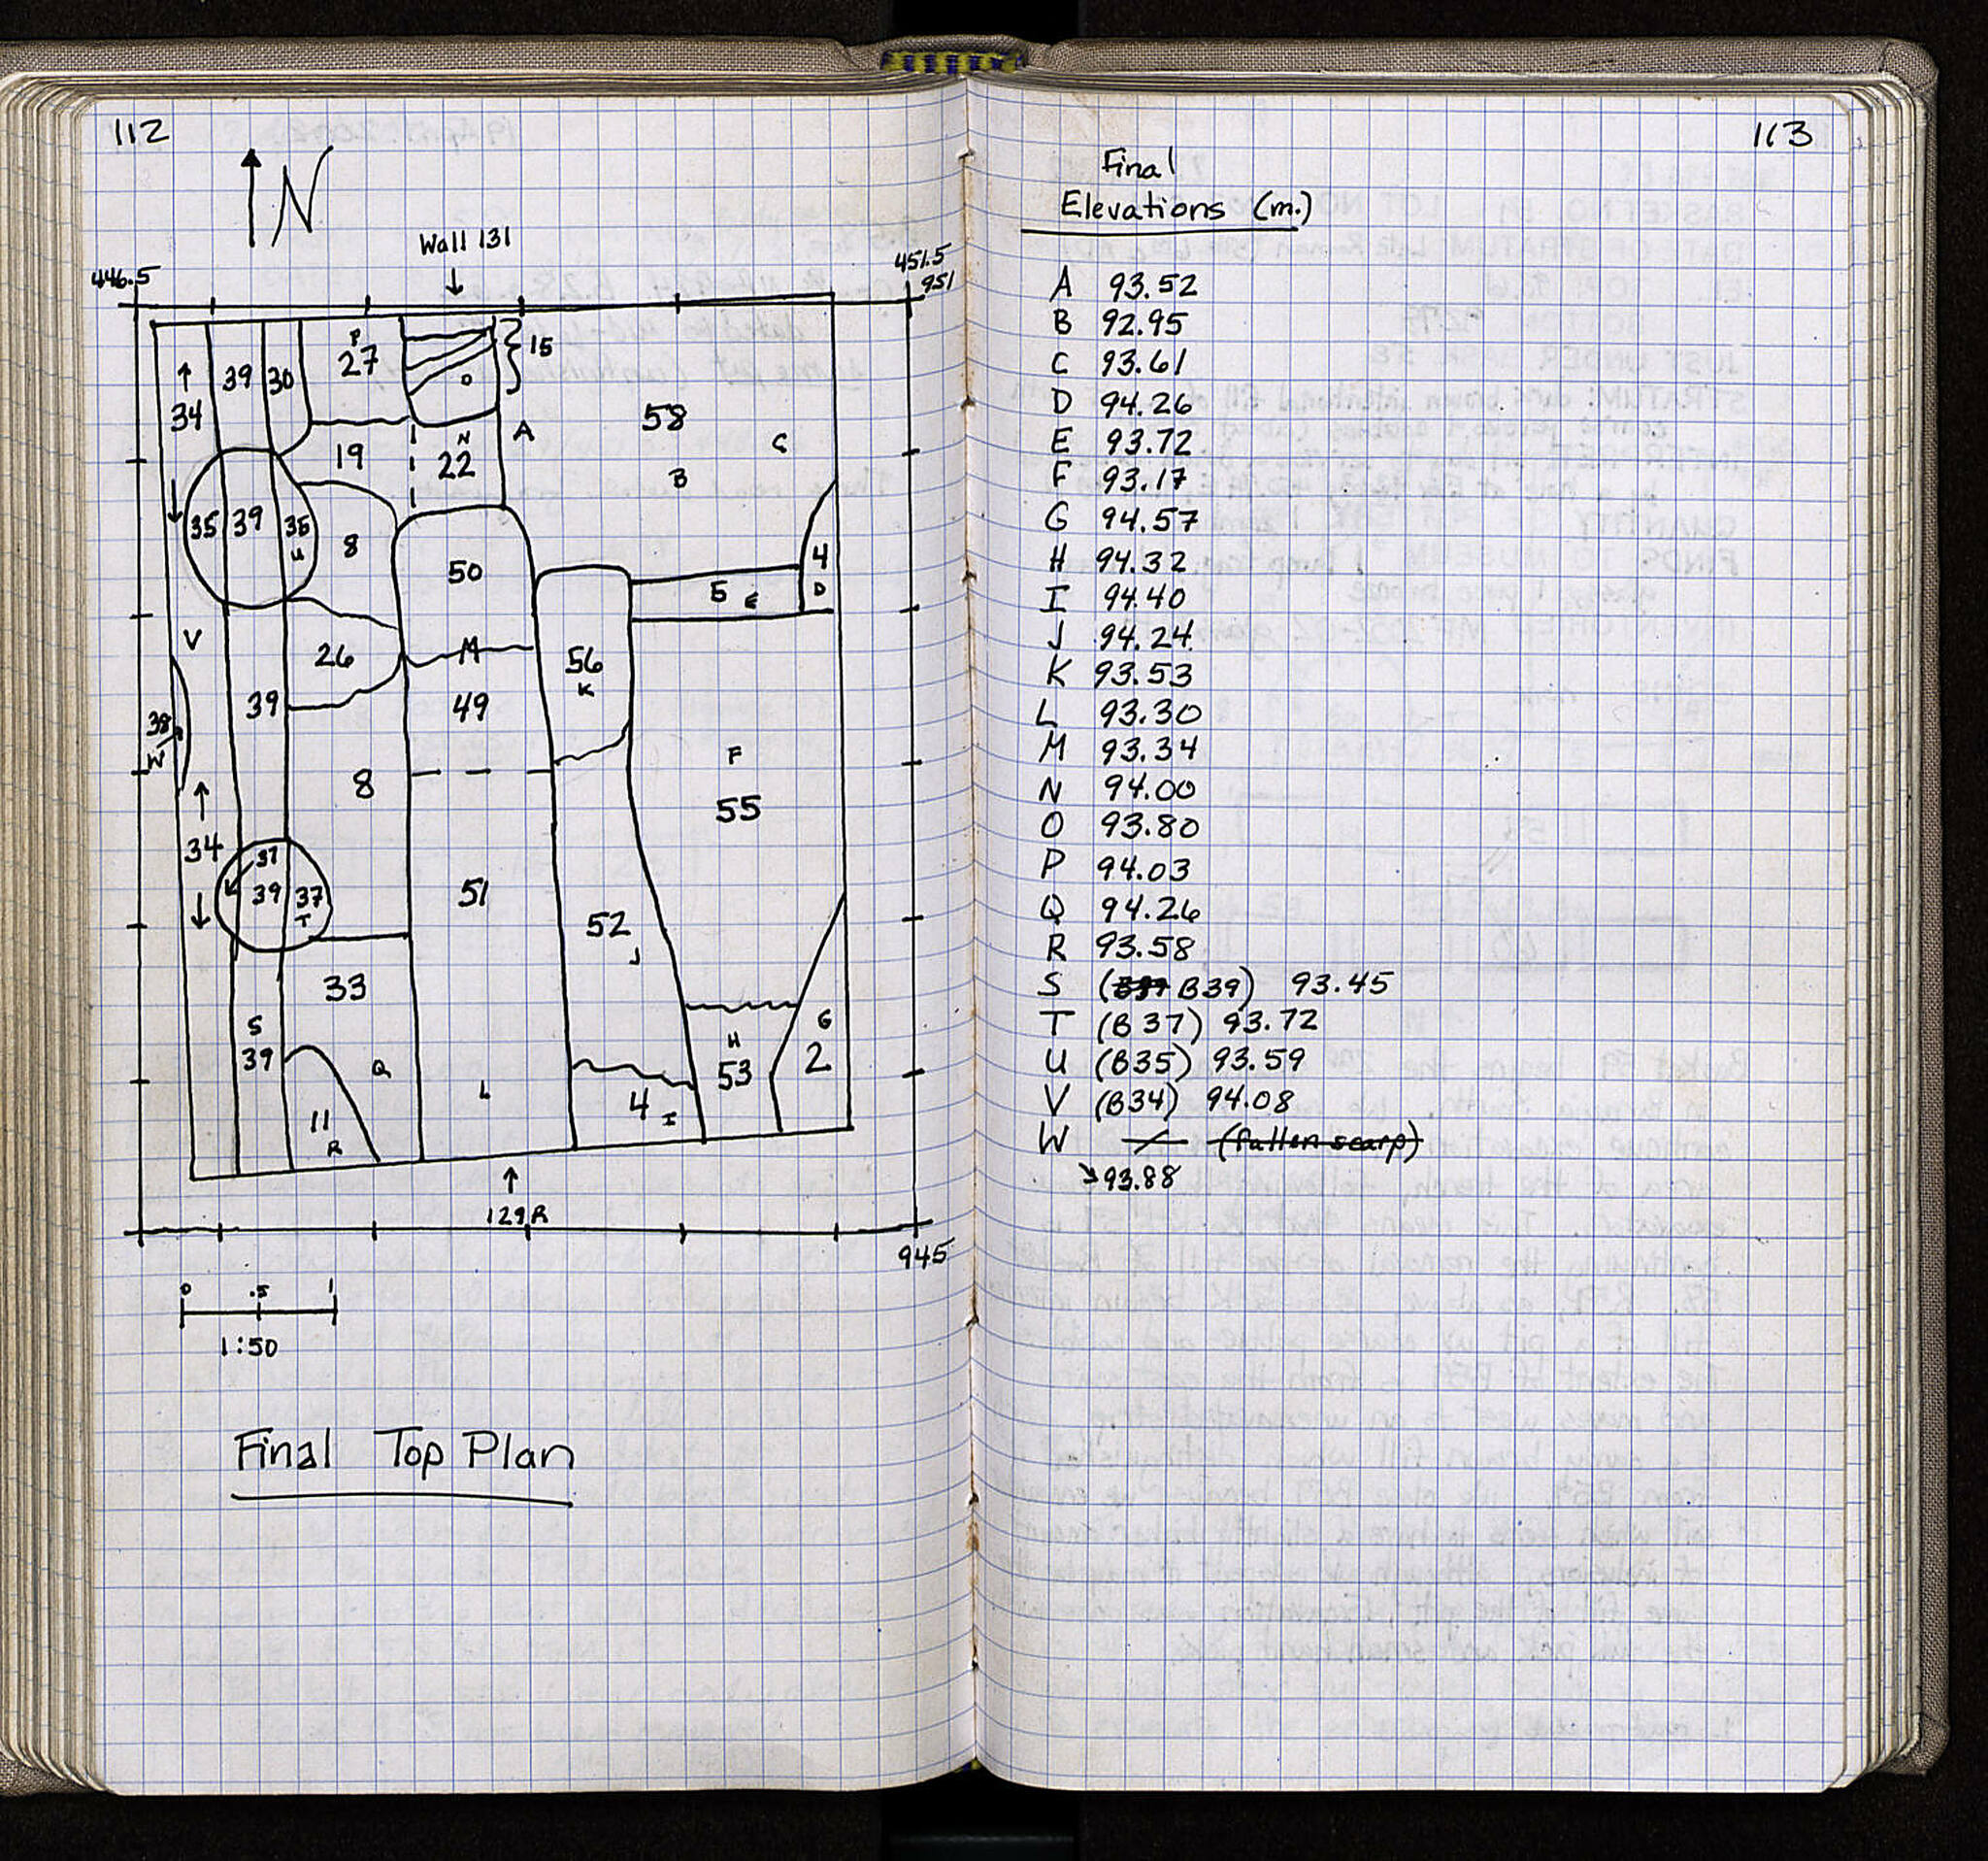 112
N
Wall 131
446.5
451.5
951
34
39
30
P
27
O
15
58
A
C
B
19
N
22
35
39
35
U
8
50
4
D
5 E
V
26
M
56
K
39
49
38
W
F
8
55
34
37
39
37
T
51
52
J
33
S
39
Q
L
H
53
G
2
11
R
4 I
129R
945
0 .5 1
1:50
Final Top Plan
113
Final
Elevations (m.)
A 93.52
B 92.95
C 93.61
D 94.26
E 93.72
F 93.17
G 94.57
H 94.32
I 94.40
J 94.24
K 93.53
L 93.30
M 93.34
N 94.00
O 93.80
P 94.03
Q 94.26
R 93.58
S (B39) 93.45
T (B37) 93.72
U (B35) 93.59
V (B34) 94.08
W (fallen scarp)
93.88